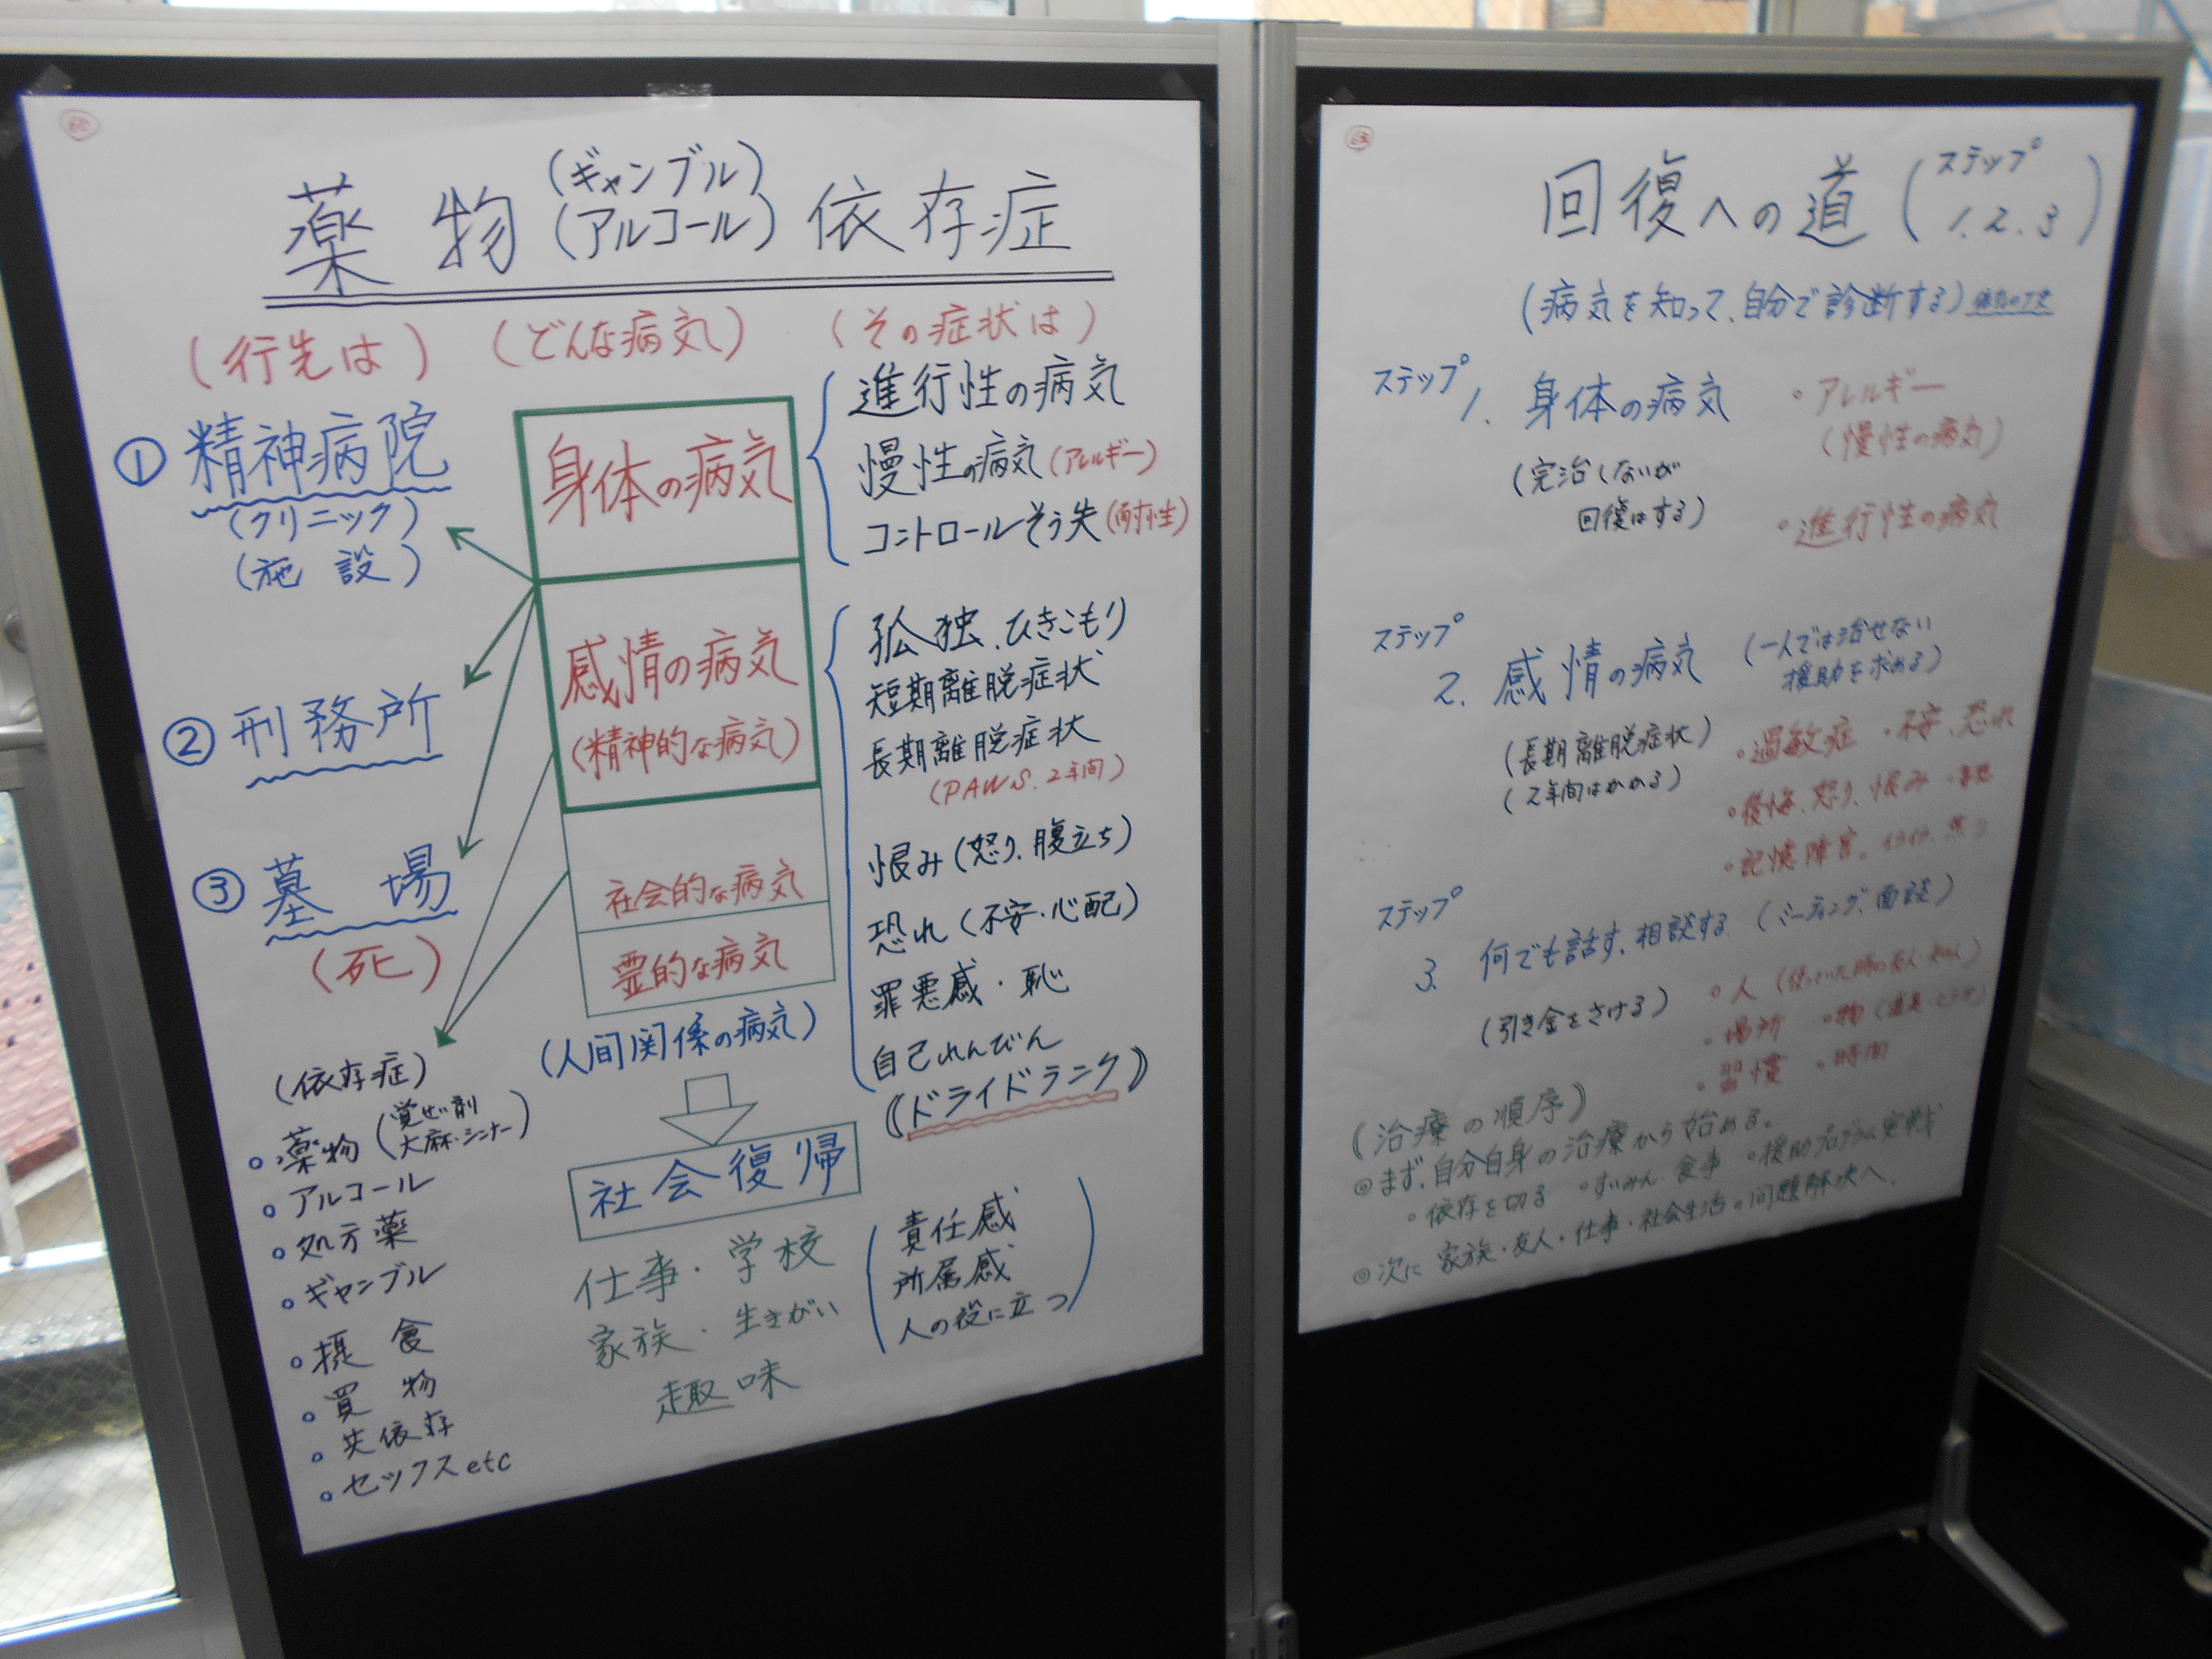 薬物(ギャンブル)(アルコール)依存症
(行先は)
(どんな病気)
(その症状は)
① 精神病院
(クリニック)
(施設)
② 刑務所
③ 墓場
(死)
(依存症)
薬物(覚せい剤
大麻・シンナー)
アルコール
処方薬
ギャンブル
摂食
買物
共依存
セックスetc
身体の病気
感情の病気
(精神的な病気)
社会的な病気
霊的な病気
(人間関係の病気)
社会復帰
仕事・学校
家族・生きがい
趣味
進行性の病気
慢性の病気(アレルギー)
コントロールそう失(耐性)
孤独、ひきこもり
短期離脱症状
長期離脱症状
(PAWS、2年間)
恨み(怒り、腹立ち)
恐れ(不安・心配)
罪悪感・恥
自己れんびん
《ドライドランク》
責任感
所属感
人の役に立つ
回復への道(ステップ 1.2.3)
(病気を知って、自分で診断する)
ステップ1. 身体の病気
(完治しないが
回復はする)
・アレルギー
(慢性の病気)
・進行性の病気
ステップ2. 感情の病気
(一人では治せない
援助を求める)
(長期離脱症状)
(2年間はかかる)
・過敏症 ・不安、恐れ
・後悔、怒り、恨み
・記憶障害。イライラ、焦り
ステップ3. 何でも話す、相談する(ミーティング、面談)
(引き金をさける)
・人(使っていた時の友人・知人)
・場所 ・物
・習慣 ・時間
《治療の順序》
◎まず、自分自身の治療から始める。
・依存を切る ・すいみん・食事 ・援助プログラム実践
◎次に 家族・友人・仕事・社会生活の問題解決へ。